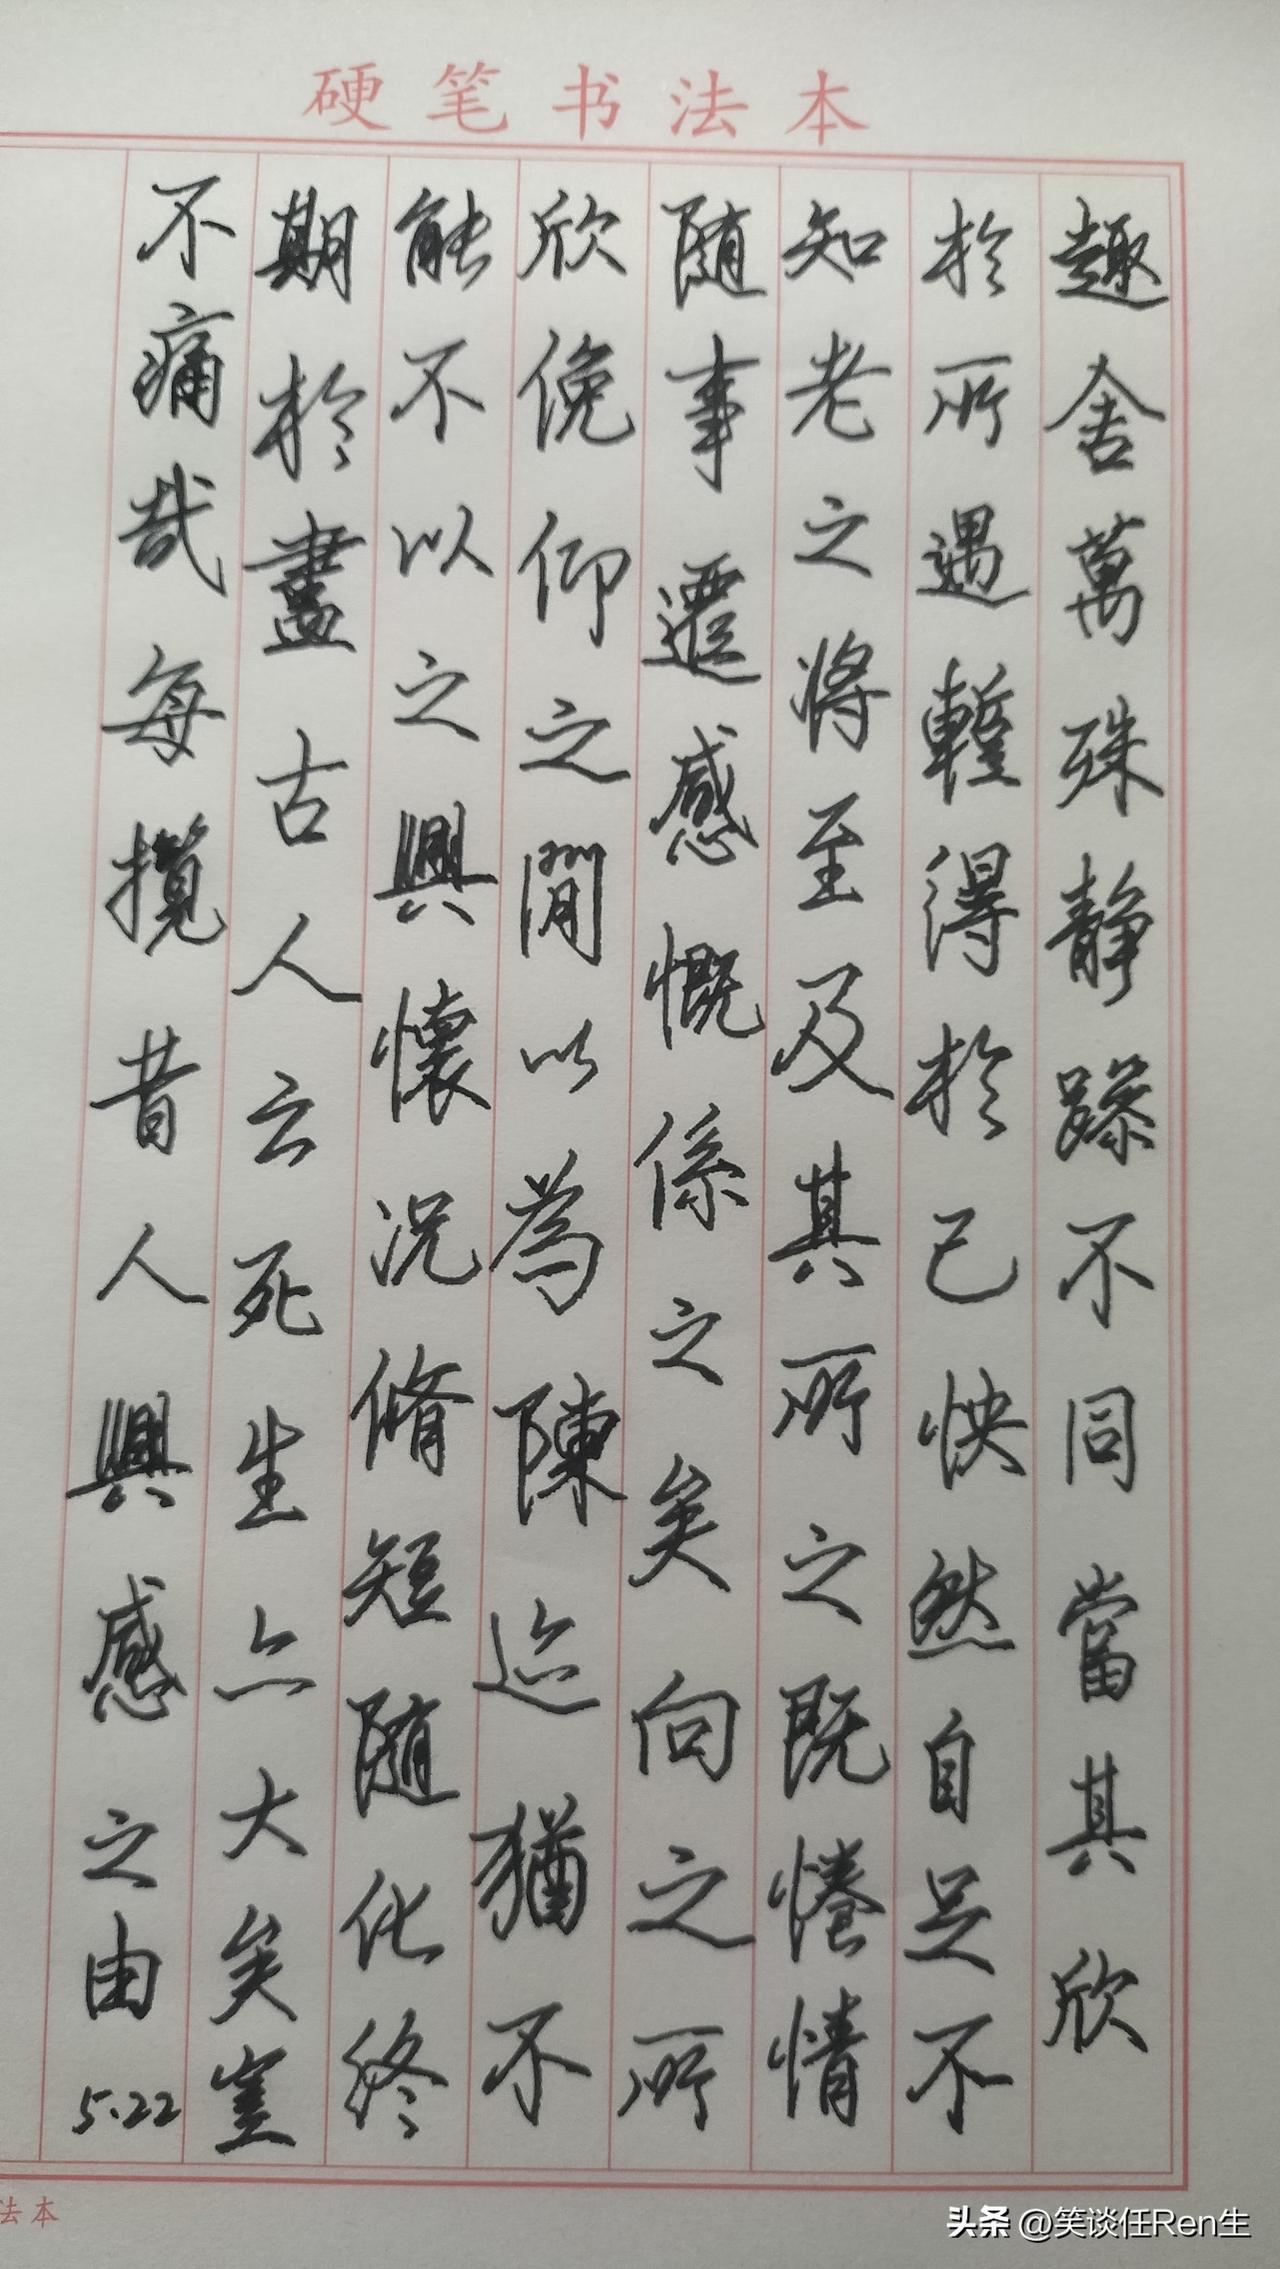 硬笔书法本
趣舍萬殊静躁不同當其欣
於所遇暫得於己快然自足不
知老之将至及其所之既惓情
随事遷感慨係之矣向之所
欣俛仰之閒以為陳迹猶不
能不以之興懷況脩短随化終
期於盡古人云死生亦大矣豈
不痛哉每攬昔人興感之由
5.22
法本
头条 @笑谈任Ren生